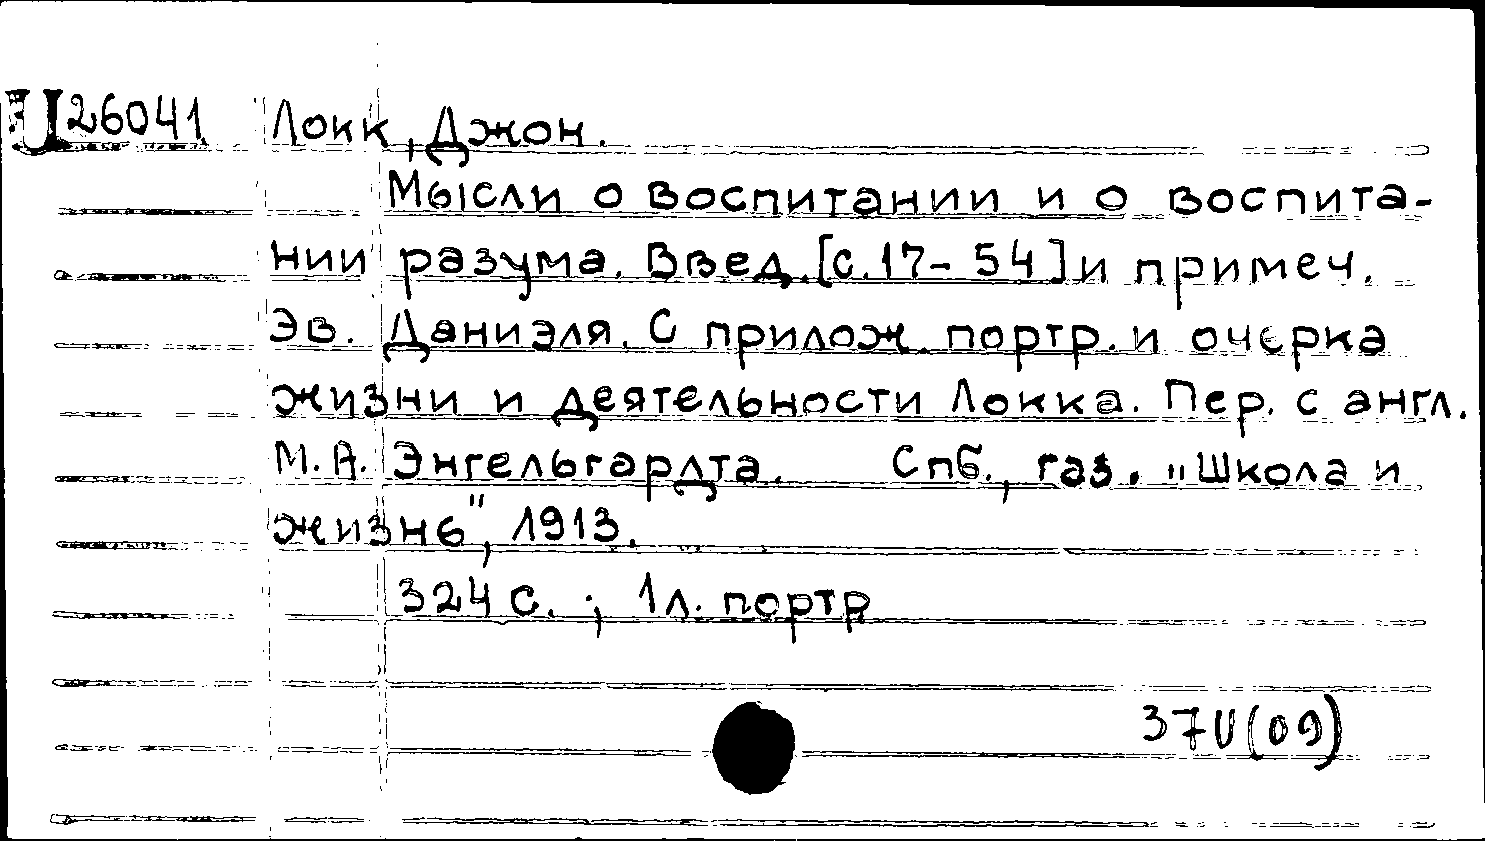 U26041 Локк, Джон.
Мысли о воспитании и о воспита-
нии разума. Введ. [с. 17-54] и примеч.
Эв. Даниэля. С прилож. портр. и очерка
жизни и деятельности Локка. Пер. с англ.
М.А. Энгельгардта. Спб., газ. "Школа и
жизнь", 1913.
324 с. ; 1 л. портр
37U(09)